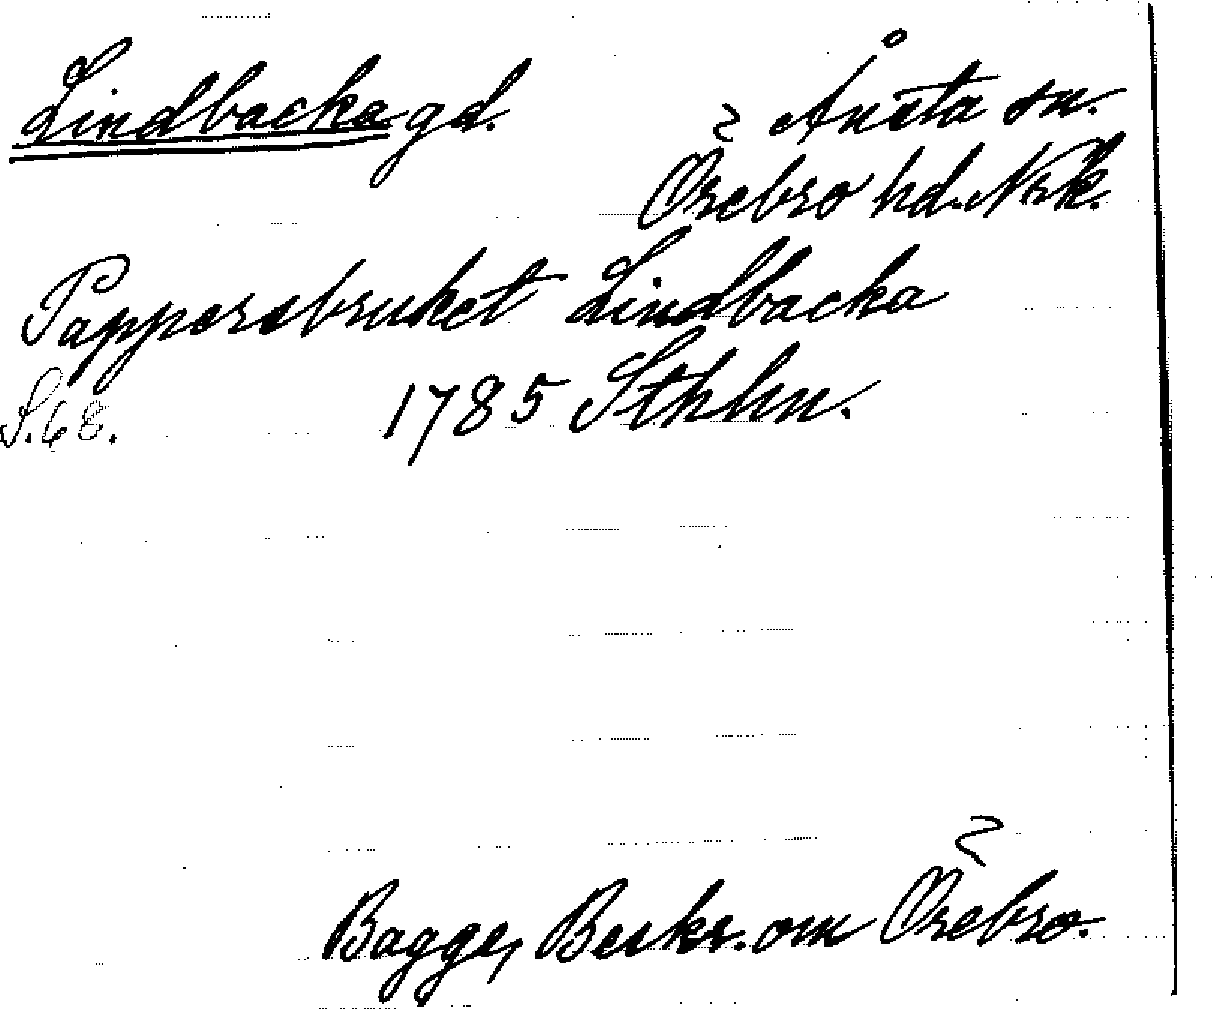 Lindbacka gd. Ånsta sn.
Örebro hd. Nrk.
Pappersbruket Lindbacka
S. 68. 1785 Sthlm.
Bagge, Beskr. om Örebro.